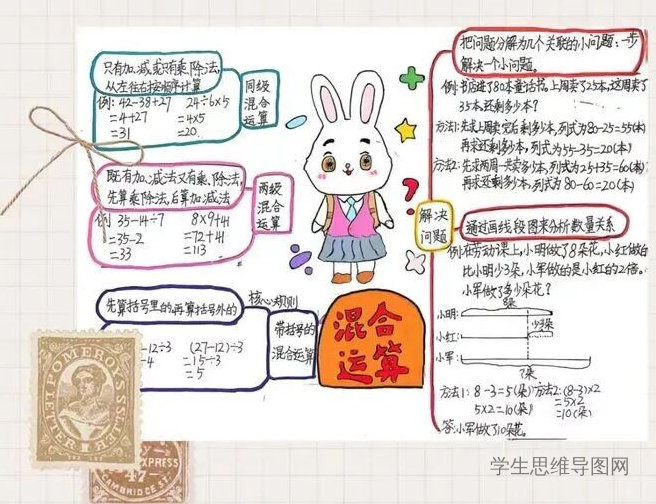 只有加、减或只有乘、除法，
从左往右按顺序计算
例：42-38+27 24÷6×5
=4+27 =4×5
=31 =20
同级
混合
运算
既有加、减法又有乘、除法，
先算乘除法，后算加减法
例 35-14÷7 8×9+41
=35-2 =72+41
=33 =113
两级
混合
运算
先算括号里的，再算括号外的
-12÷3 (27-12)÷3
-4 =15÷3
=5
带括号的
混合运算
核心规则
混合
运算
解决
问题
把问题分解为几个关联的小问题，一步
解决一个小问题。
例：书店进了80本童话书，上周卖了25本，这周卖了
35本，还剩多少本？
方法1：先求上周卖完后剩多少本，列式为80-25=55(本)
再求还剩多少本，列式为55-35=20(本)
方法2：先求两周一共卖多少本，列式为25+35=60(本)
再求还剩多少本，列式为80-60=20(本)
通过画线段图来分析数量关系
例：在劳动课上，小明做了8朵花，小红做的
比小明少3朵，小军做的是小红的2倍。
小军做了多少朵花？
8朵
小明：
少3朵
小红：
小军：
?朵
方法1：8-3=5(朵) 方法2：(8-3)×2
5×2=10(朵) =5×2
=10(朵)
答：小军做了10朵花。
POMEROY'S
LETTER
EXPRESS
47
CAMBRIDGE ST
学生思维导图网